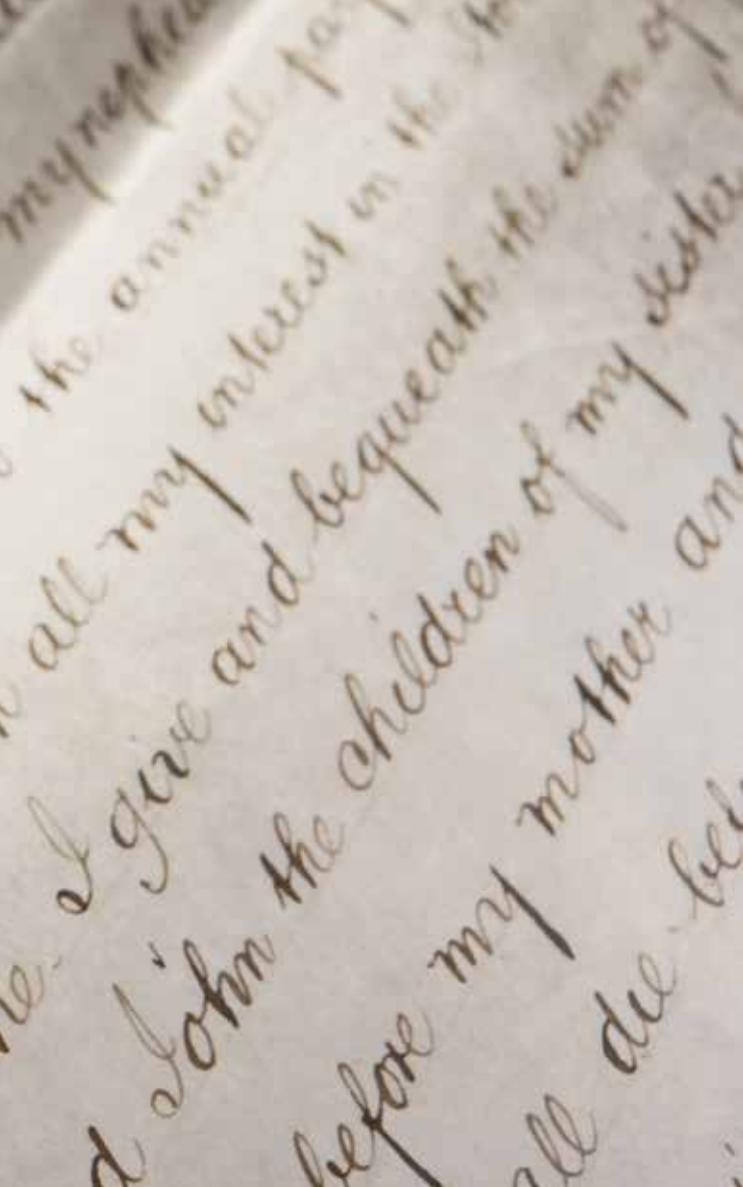 my nephew
the annual
all my interest in the
I give and bequeath the sum of
John the children of my sister
before my mother and
all die